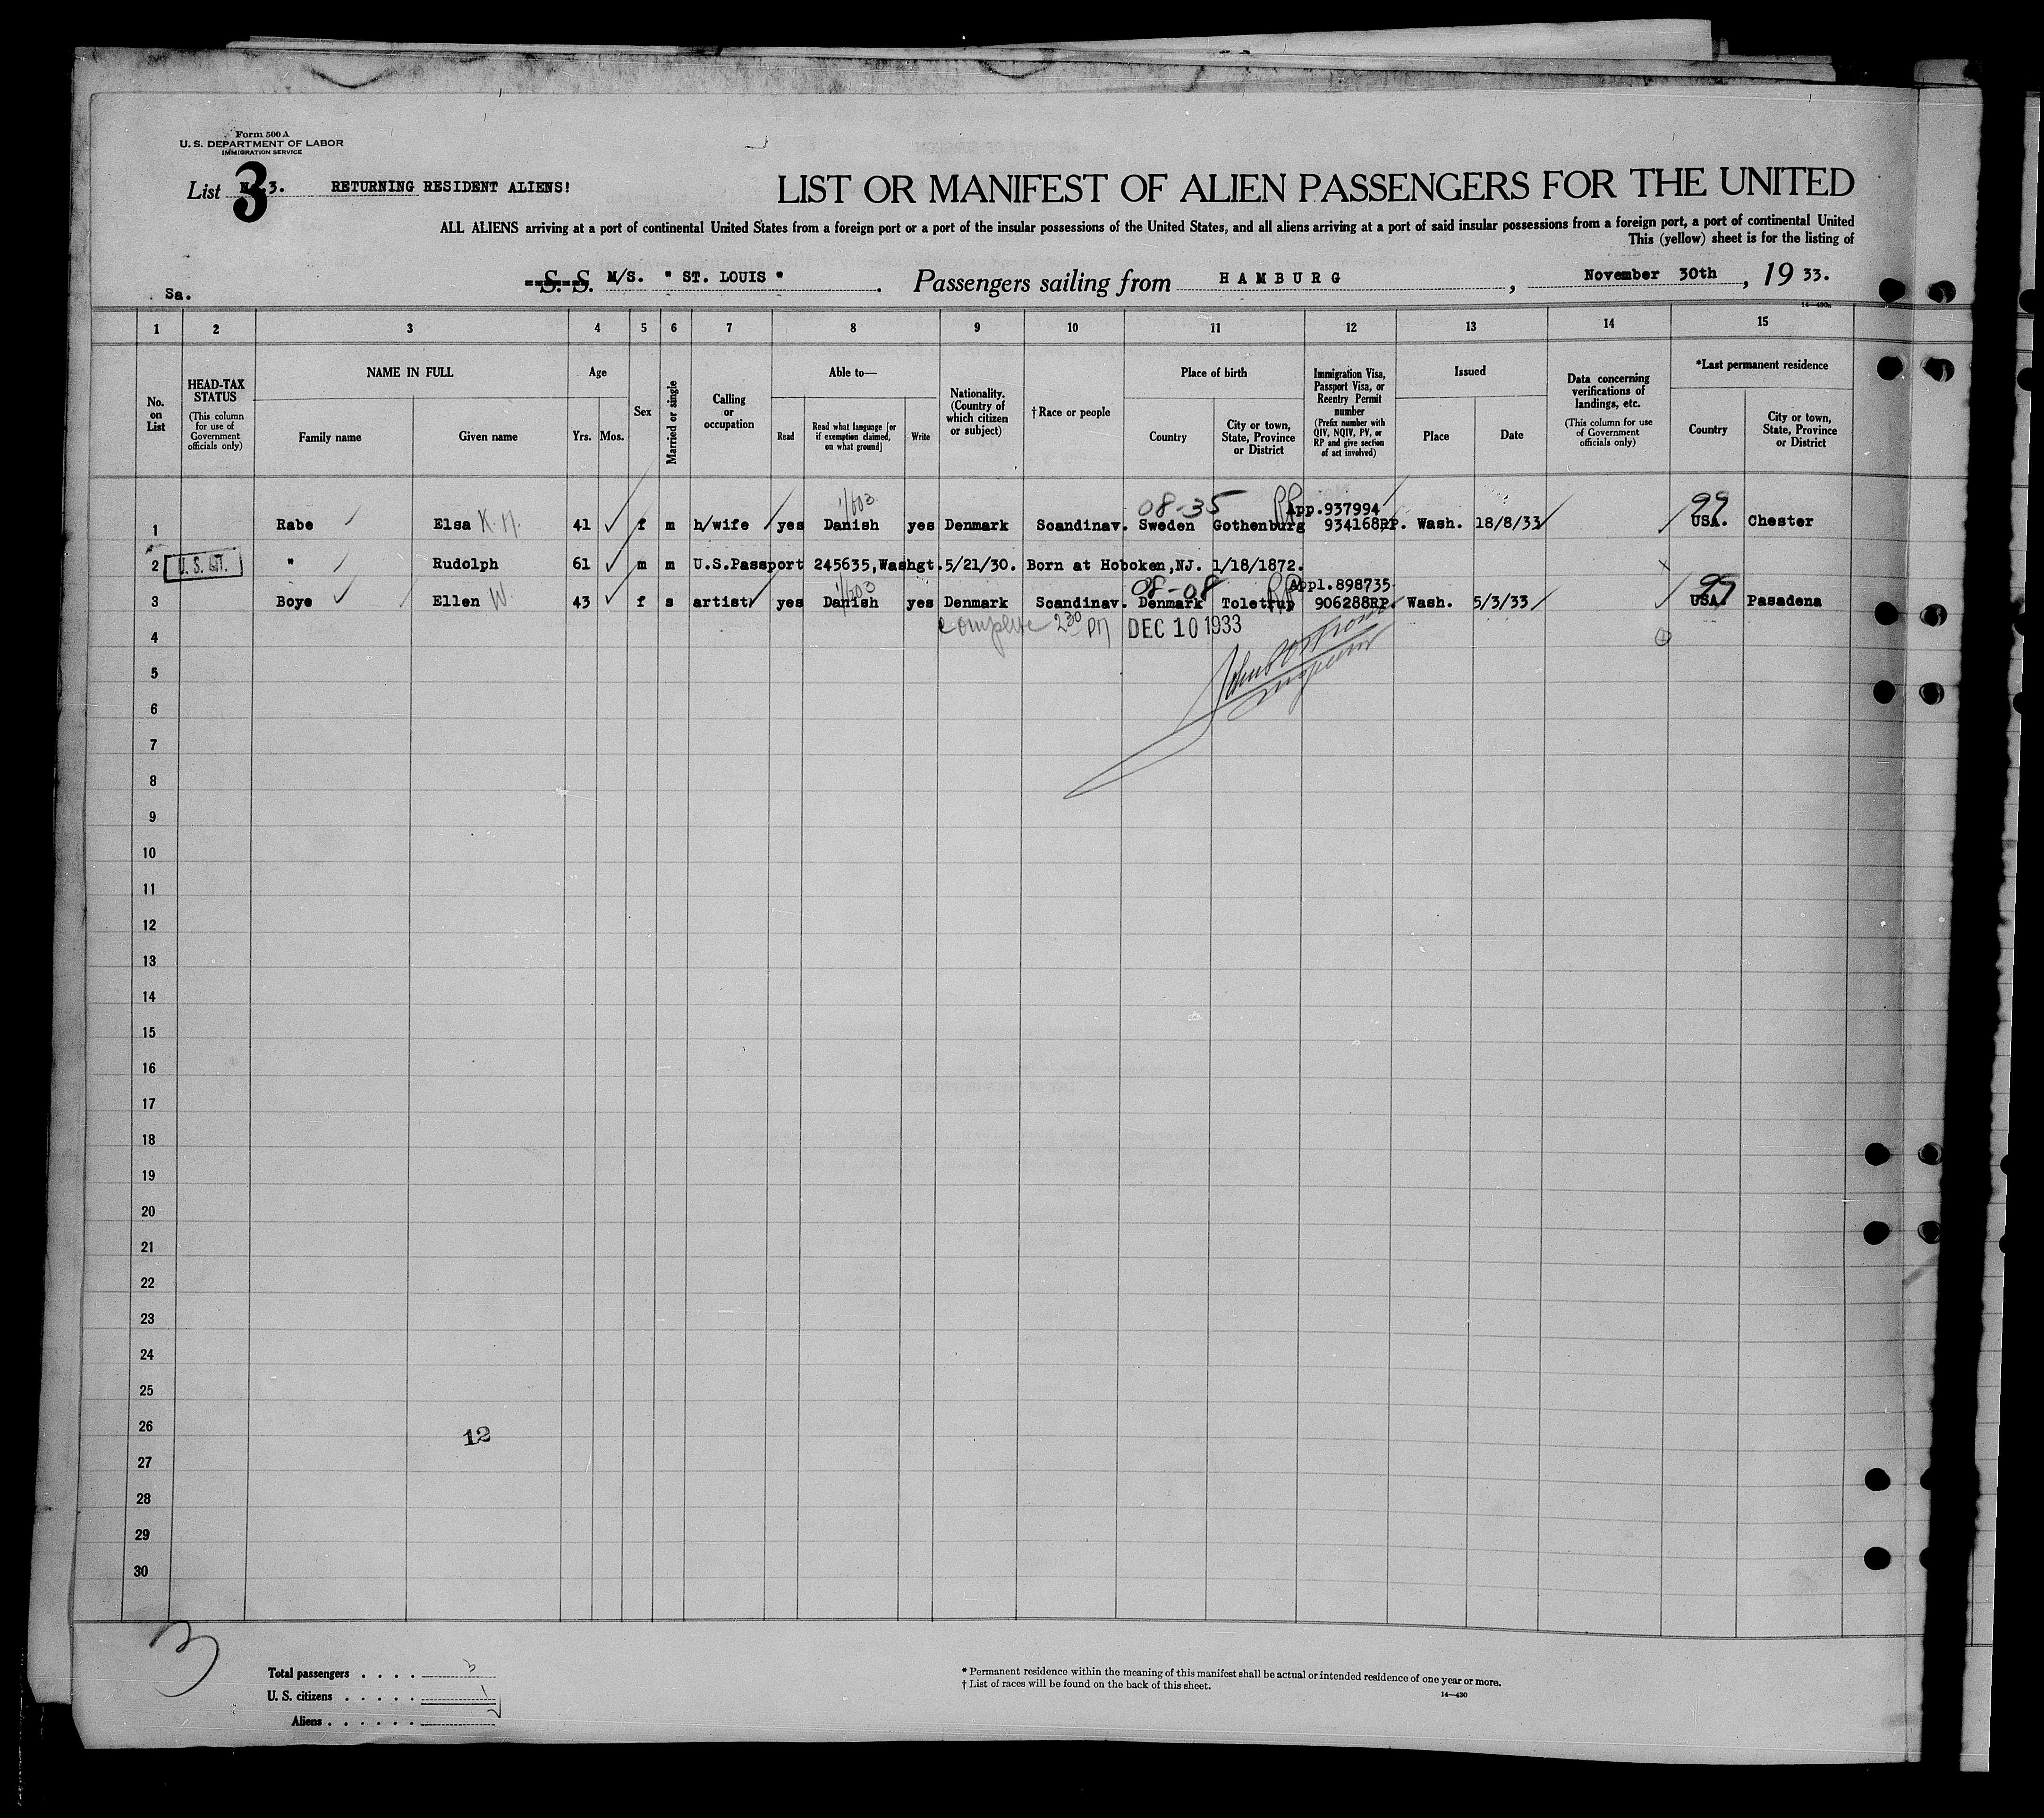 Form 500 A
U. S. DEPARTMENT OF LABOR
IMMIGRATION SERVICE
List 3. RETURNING RESIDENT ALIENS!
3
LIST OR MANIFEST OF ALIEN PASSENGERS FOR THE UNITED
ALL ALIENS arriving at a port of continental United States from a foreign port or a port of the insular possessions of the United States, and all aliens arriving at a port of said insular possessions from a foreign port, a port of continental United
This (yellow) sheet is for the listing of
S. S. M/S. " ST. LOUIS " . Passengers sailing from HAMBURG , November 30th , 19 33.
Sa.
14—430a
1 2 3 4 5 6 7 8 9 10 11 12 13 14 15
No. on List
HEAD-TAX STATUS (This column for use of Government officials only)
NAME IN FULL
Family name Given name
Age
Yrs. Mos.
Sex
Married or single
Calling or occupation
Able to—
Read Read what language [or if exemption claimed, on what ground] Write
Nationality. (Country of which citizen or subject)
†Race or people
Place of birth
Country City or town, State, Province or District
Immigration Visa, Passport Visa, or Reentry Permit number (Prefix number with QIV, NQIV, PV, or RP and give section of act involved)
Issued
Place Date
Data concerning verifications of landings, etc. (This column for use of Government officials only)
*Last permanent residence
Country City or town, State, Province or District
1/603 08-35 RP App.937994 99
1 Rabe Elsa K. N. 41 f m h/wife yes Danish yes Denmark Scandinav. Sweden Gothenburg 934168RP. Wash. 18/8/33 USA. Chester
2 U. S. CIT. " Rudolph 61 m m U.S.Passport 245635,Washgt.5/21/30. Born at Hoboken,NJ. 1/18/1872.
1/603 08-08 RP Appl.898735 99
3 Boye Ellen W. 43 f s artist yes Danish yes Denmark Scandinav. Denmark Toletrup 906288RP. Wash. 5/3/33 USA. Pasadena
complete 2 30 PM DEC 10 1933
4
Inspector
5
6
7
8
9
10
11
12
13
14
15
16
17
18
19
20
21
22
23
24
25
26
12
27
28
29
30
3
Total passengers . . . . 3
U. S. citizens . . . . . 1
Aliens . . . . . . 2
* Permanent residence within the meaning of this manifest shall be actual or intended residence of one year or more.
† List of races will be found on the back of this sheet.
14—430